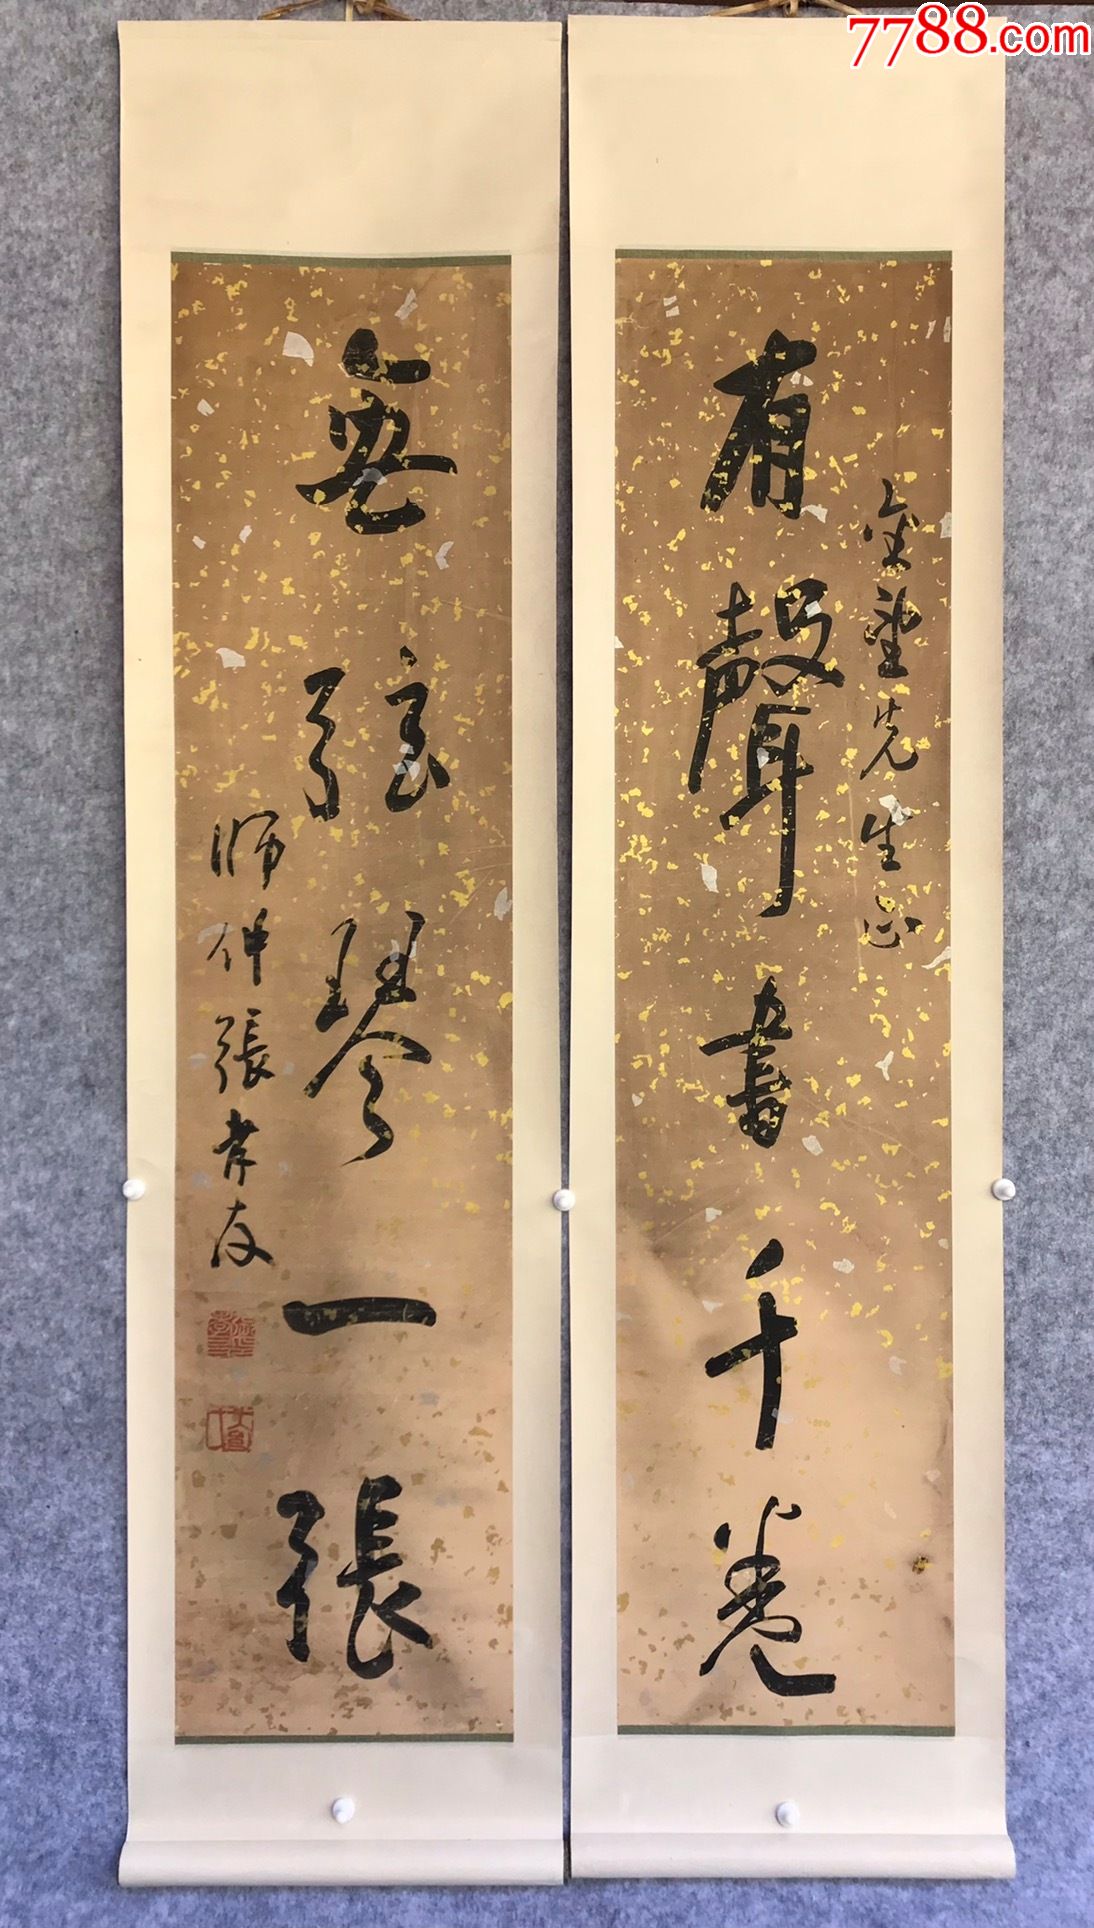 7788.com
有聲書千卷
金堂先生正
無弦琴一張
師仲張孝友